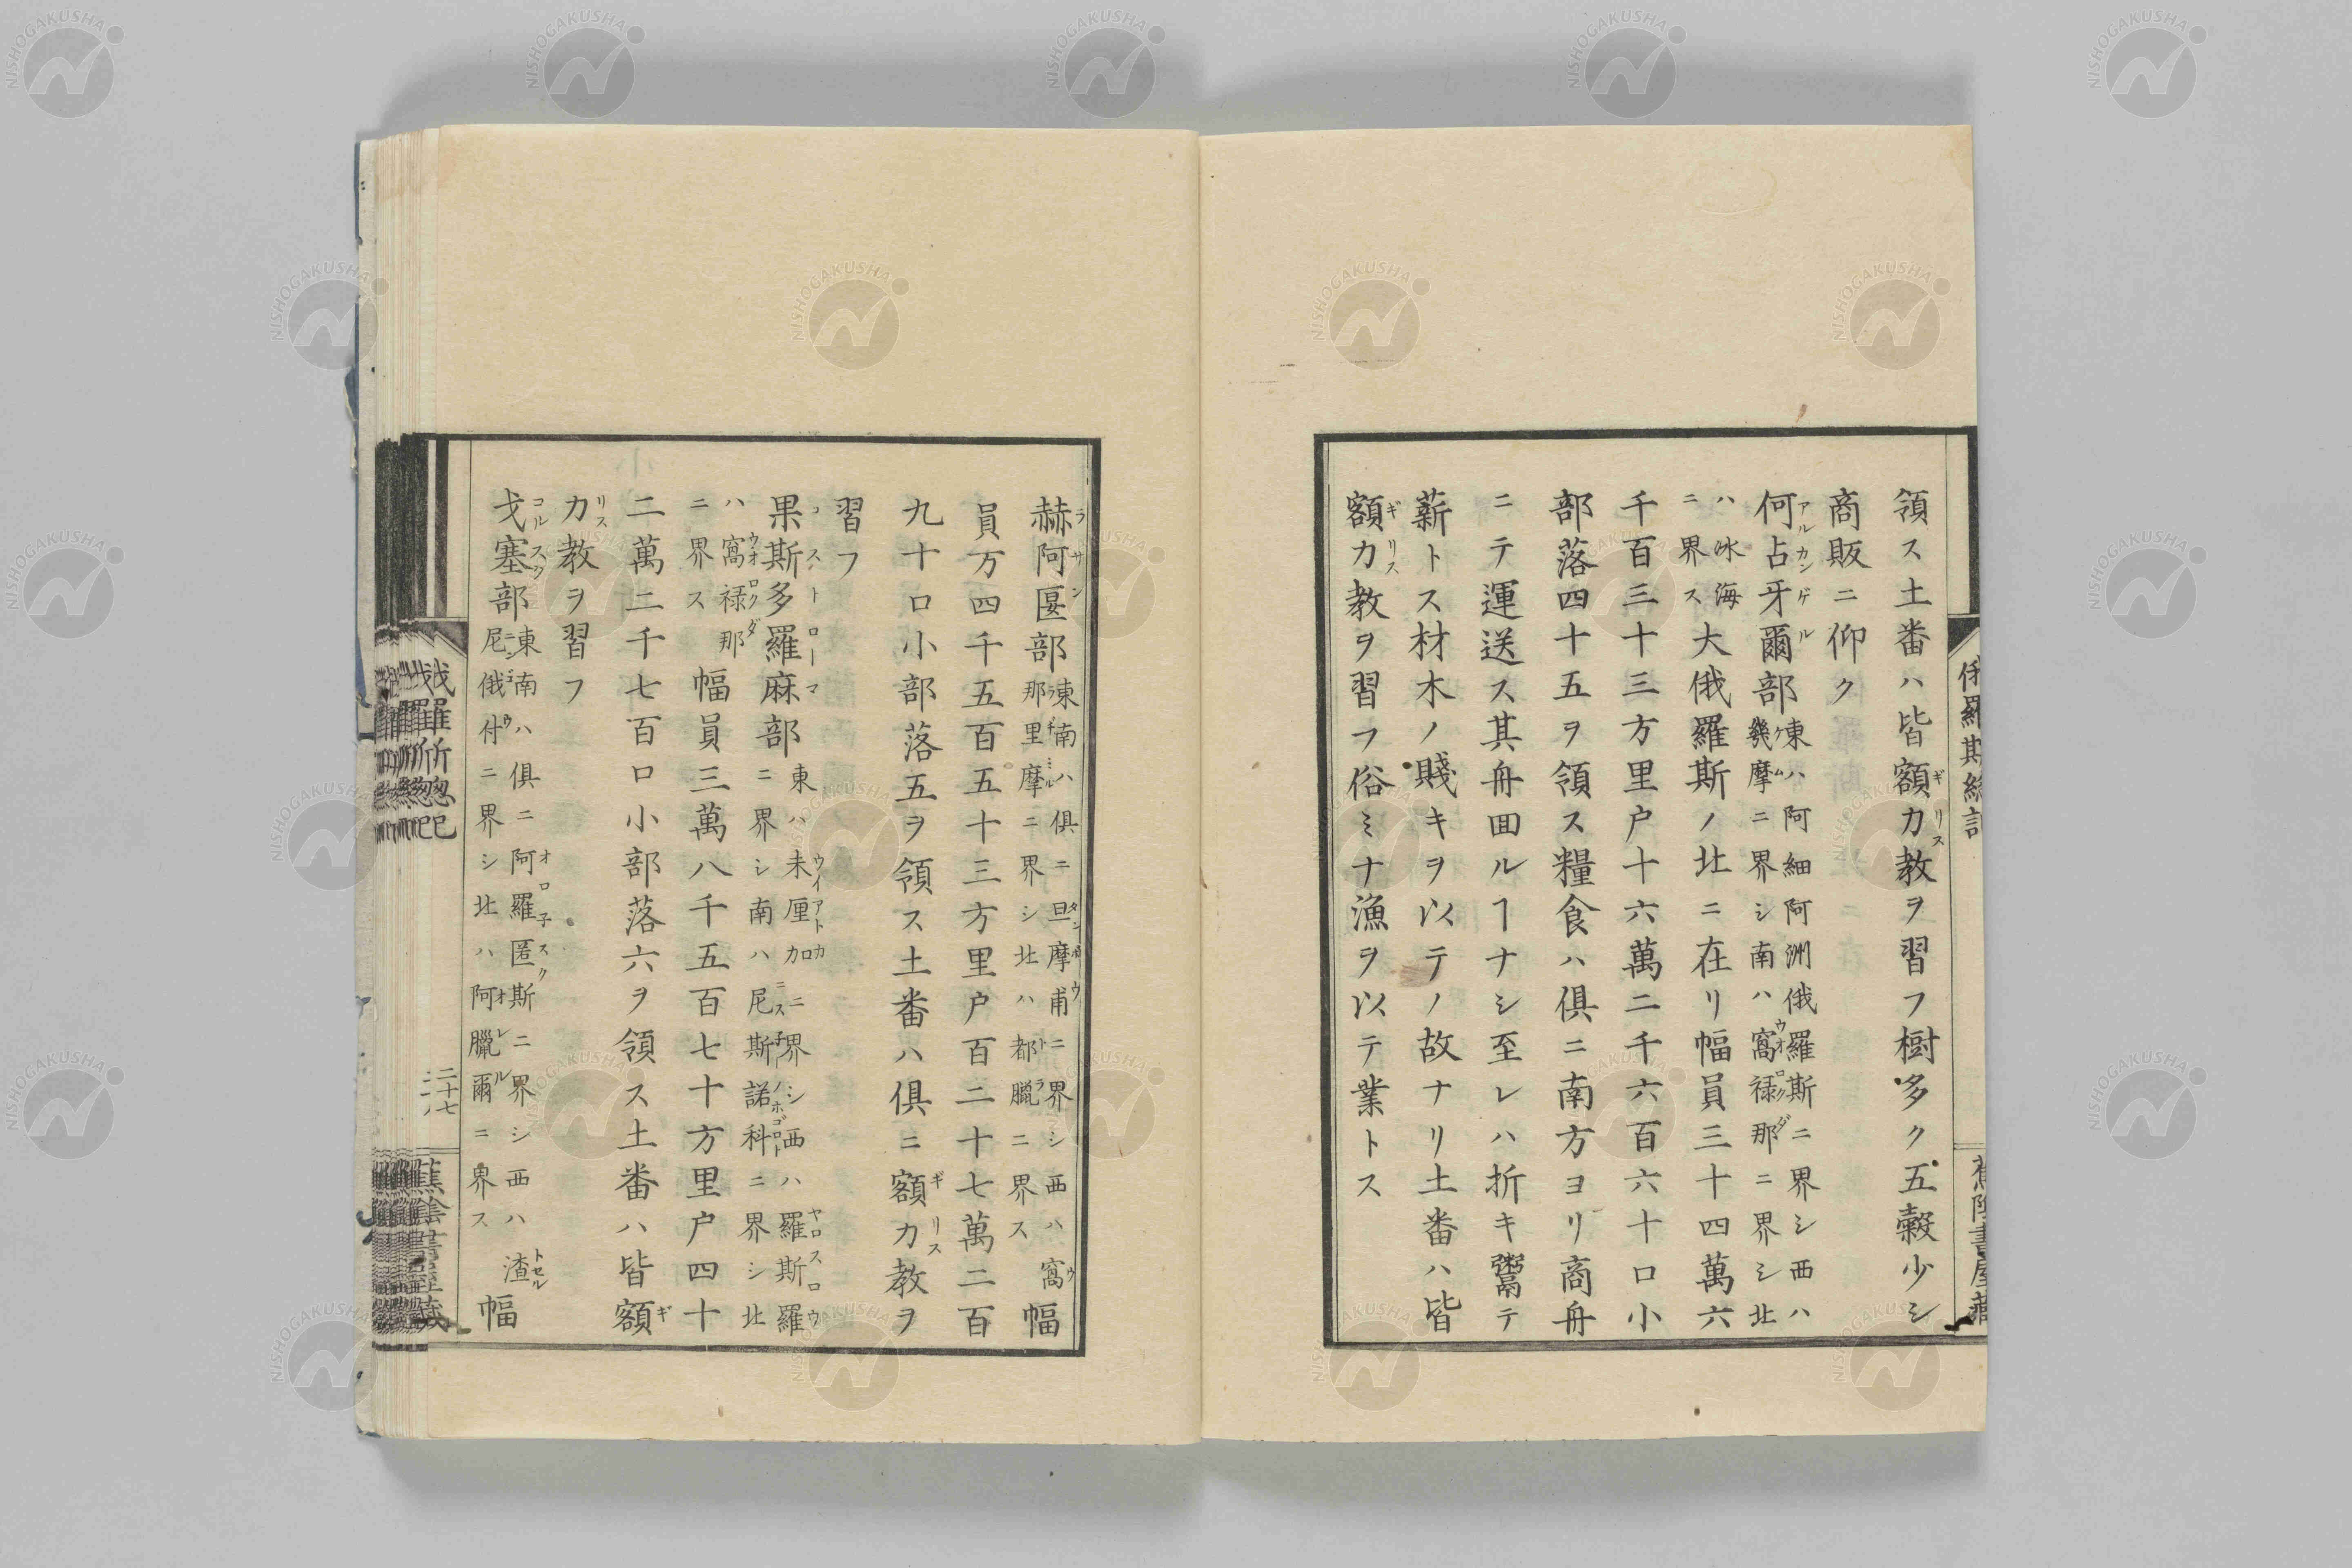 俄羅斯總記
蕉陰書屋藏
領ス土番ハ皆額力教ヲ習フ樹多ク五穀少シ
商販ニ仰ク
何占牙爾部東ハ阿細阿洲俄羅斯ニ界シ西ハ
幾摩ニ界シ南ハ窩禄那ニ界シ北
ハ氷海
ニ界ス大俄羅斯ノ北ニ在リ幅員三十四萬六
千百三十三方里户十六萬二千六百六十口小
部落四十五ヲ領ス糧食ハ俱ニ南方ヨリ商舟
ニテ運送ス其舟囬ルヿナシ至レハ折キ鬻テ
薪トス材木ノ賤キヲ以テノ故ナリ土番ハ皆
額力教ヲ習フ俗ミナ漁ヲ以テ業トス
赫阿匽部東南ハ俱ニ旦摩甫ニ界シ西ハ窩
那里摩ニ界シ北ハ都臘ニ界ス幅
員万四千五百五十三方里户百二十七萬二百
九十口小部落五ヲ領ス土番ハ俱ニ額力教ヲ
習フ
果斯多羅麻部東ハ未厘加ニ界シ西ハ羅斯羅
ニ界シ南ハ尼斯諾科ニ界シ北
ハ窩禄那
ニ界ス幅員三萬八千五百七十方里户四十
二萬二千七百口小部落六ヲ領ス土番ハ皆額
力教ヲ習フ
戈塞部東南ハ俱ニ阿羅匿斯ニ界シ西ハ渣
尼俄付ニ界シ北ハ阿臘爾ニ界ス幅
二十七